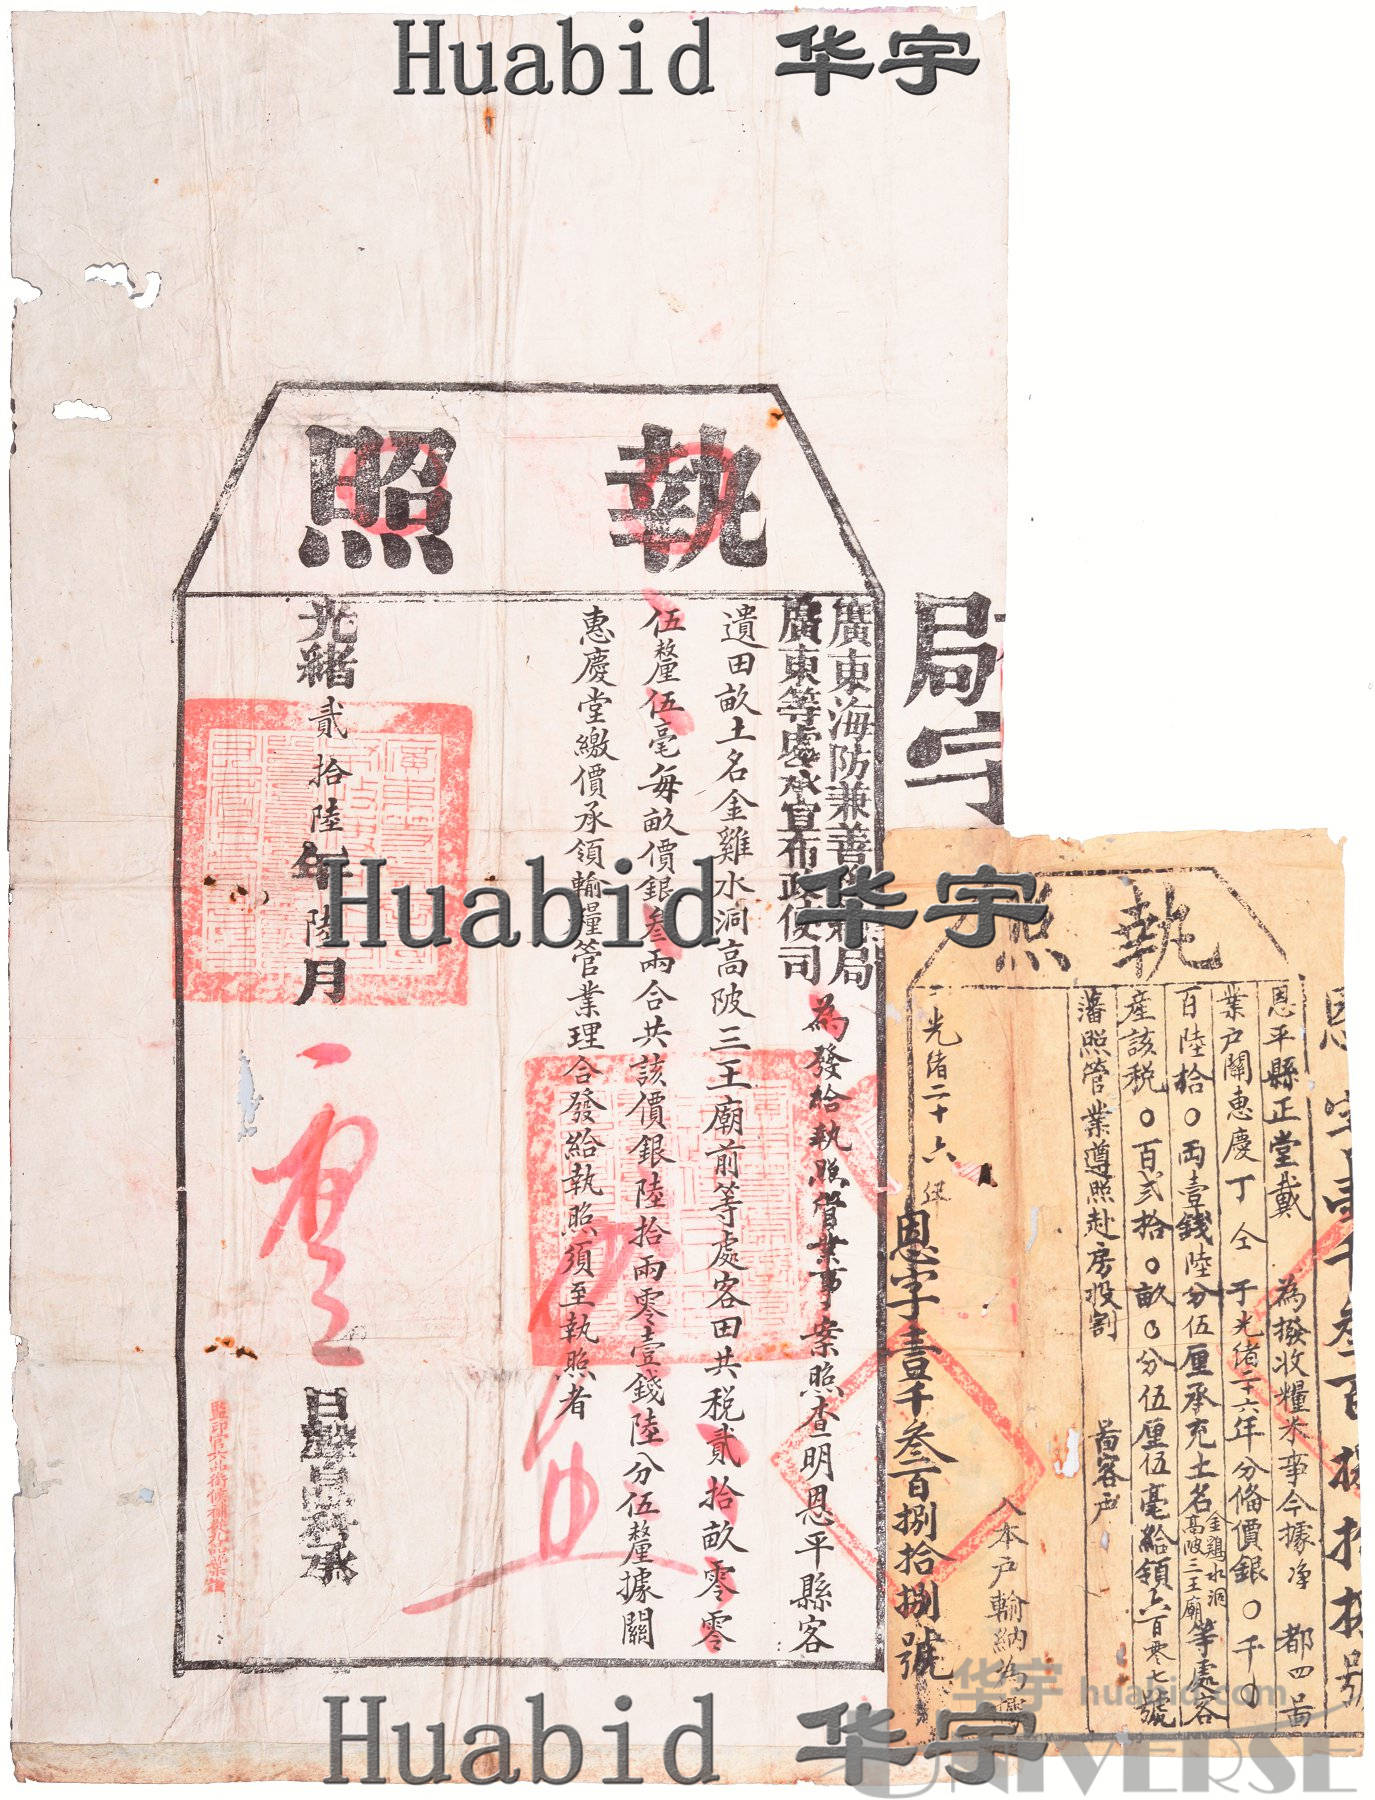 Huabid 华宇
執照
廣東海防兼善後總局
廣東等處承宣布政使司
為發給執照管業事案照查明恩平縣客
遺田畝土名金雞水洞高陂三王廟前等處客田共税貳拾畝零零
伍釐伍毫每畝價銀叁兩合共該價銀陸拾兩零壹錢陸分伍釐據關
惠慶堂繳價承領輸糧管業理合發給執照須至執照者
光緒貳拾陸年陸月
日
承
局字
恩字壹千叁百捌拾捌號
Huabid 华宇
執照
恩字壹千叁百捌拾捌號
恩平縣正堂戴 為撥收糧米事今據净 都四啚
業户關惠慶丁仝 于光緒二十六年分偹價銀〇千〇
百陸拾〇両壹錢陸分伍厘承充土名金鷄水洞高陂三王廟等處客
産該税〇百弍拾〇畝〇分伍厘伍毫給領六百零七號
藩照管業遵照赴房投割 啚客户
入本户輸納為
光绪二十六年
华宇 huabid.com
UNIVERSE
Huabid 华宇